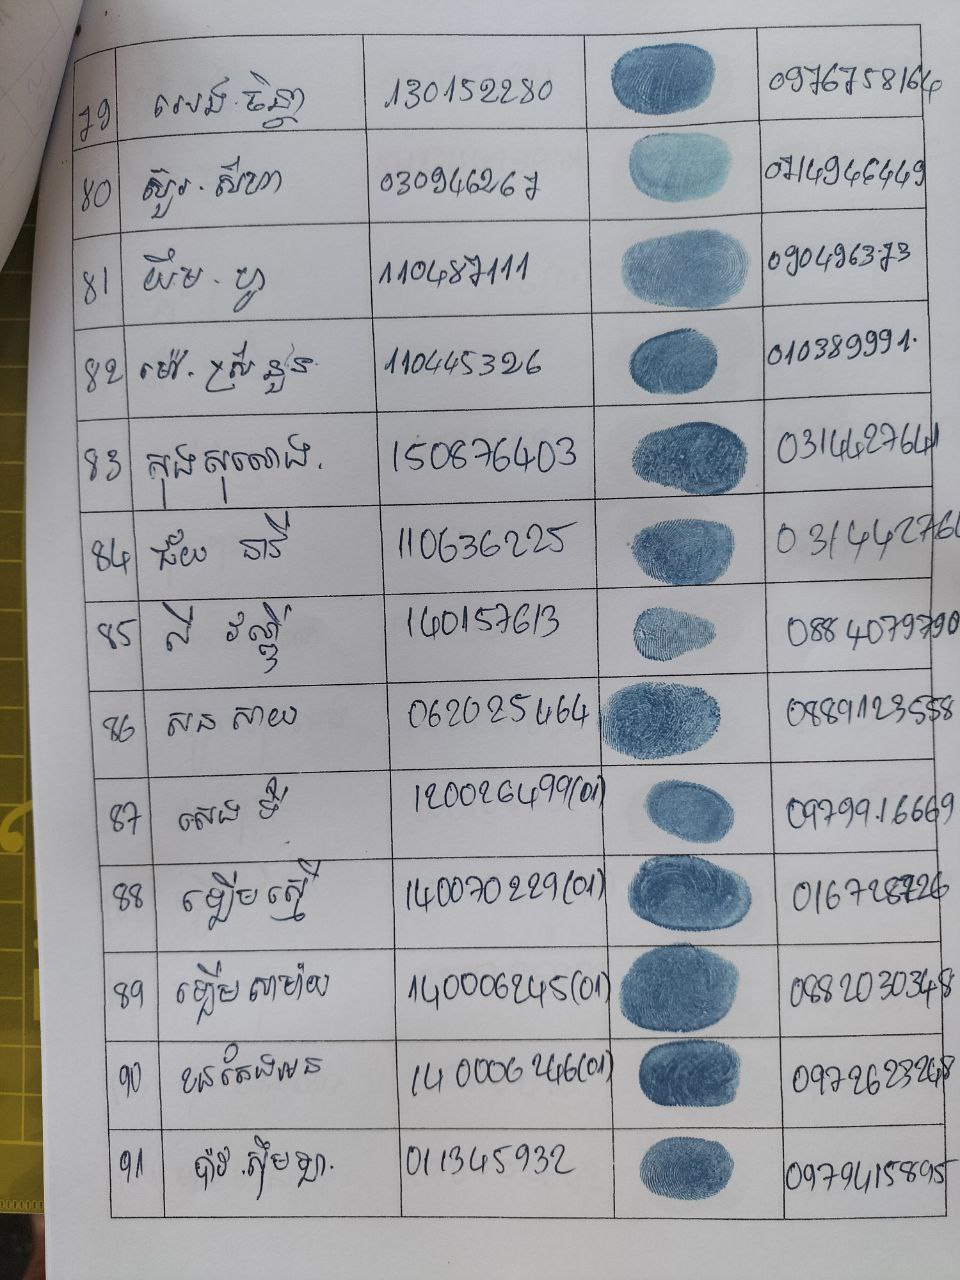 79 សេង ចិន្តា 130152280 0976758164
80 ស៊ួរ . សីហា 030946267 0714946449
81 យឹម . ហូ 110487111 090496373
82 ម៉ៅ . ស្រី នួន 110445326 010389991.
83 សុខ 150876403 0314427641
84 ជ័យ នារី 110636225
85 លី វណ្ណី 140157613 0884079790
86 សន សាយ 062025464 0889123558
87 សេង ទី 120026499(01) 0979916669
88 ឡឹម ស្មើ 140070229(01)
89 ឡឹម សាម៉ាយ 140006245(01) 0882030348
90 140006246(01) 0972623248
91 ប៉ាវ . ស៊ឹមឡា. 011345932 0979415895